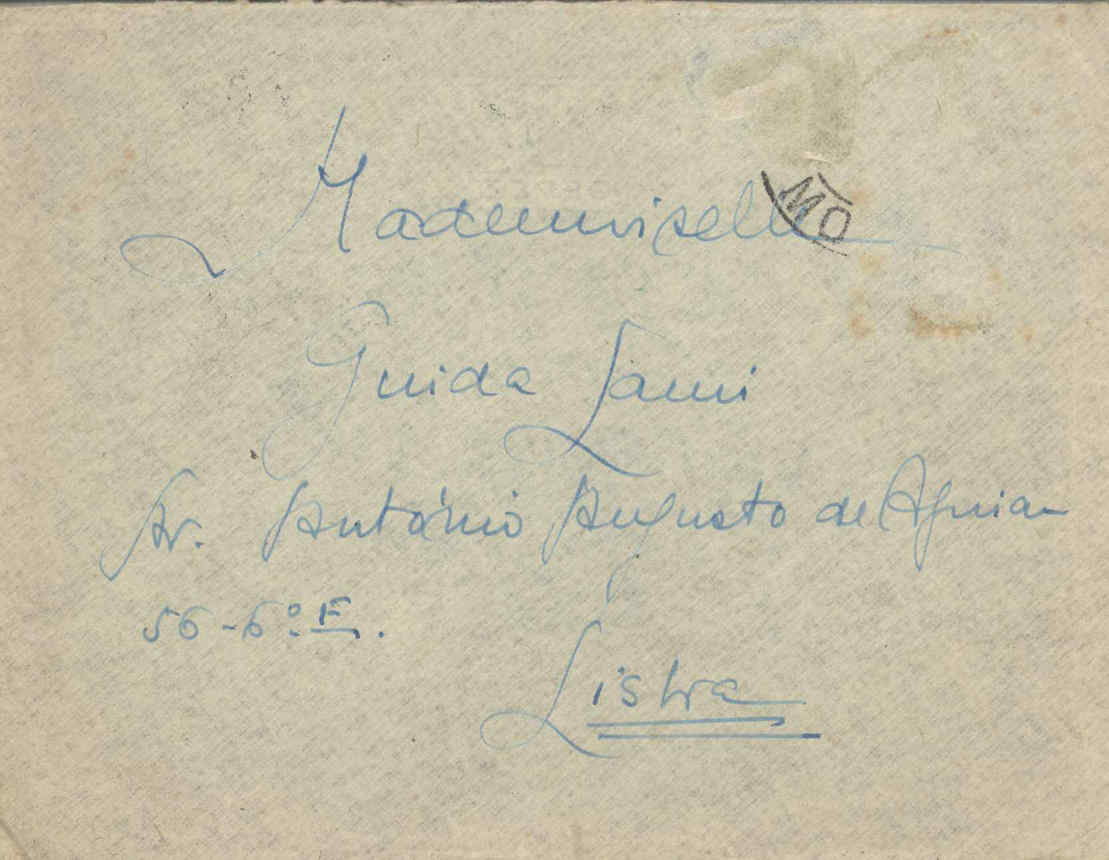 Mademoiselle
MO
Guida Lami
Av. António Augusto de Aguiar
56-6º E.
Lisboa